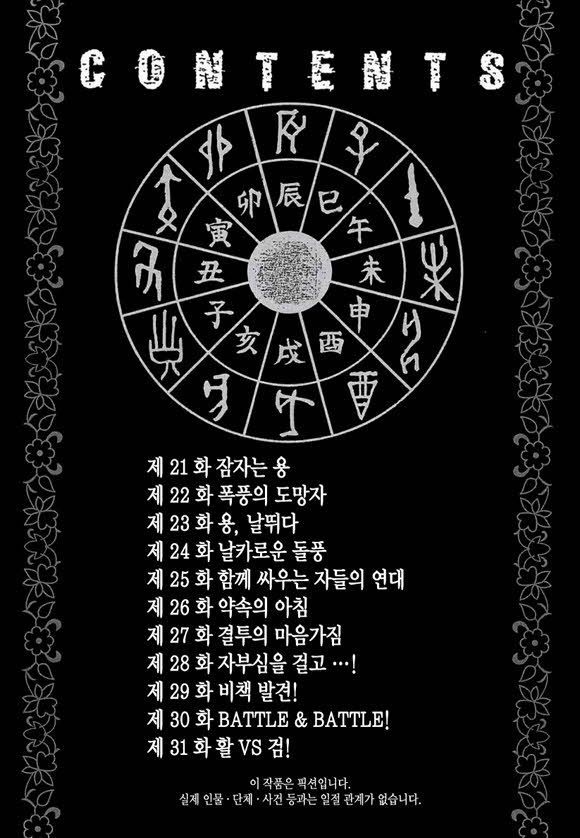 CONTENTS
辰
巳
午
未
申
酉
戌
亥
子
丑
寅
卯
제 21 화 잠자는 용
제 22 화 폭풍의 도망자
제 23 화 용, 날뛰다
제 24 화 날카로운 돌풍
제 25 화 함께 싸우는 자들의 연대
제 26 화 약속의 아침
제 27 화 결투의 마음가짐
제 28 화 자부심을 걸고 …!
제 29 화 비책 발견!
제 30 화 BATTLE & BATTLE!
제 31 화 활 VS 검!
이 작품은 픽션입니다.
실제 인물 · 단체 · 사건 등과는 일절 관계가 없습니다.